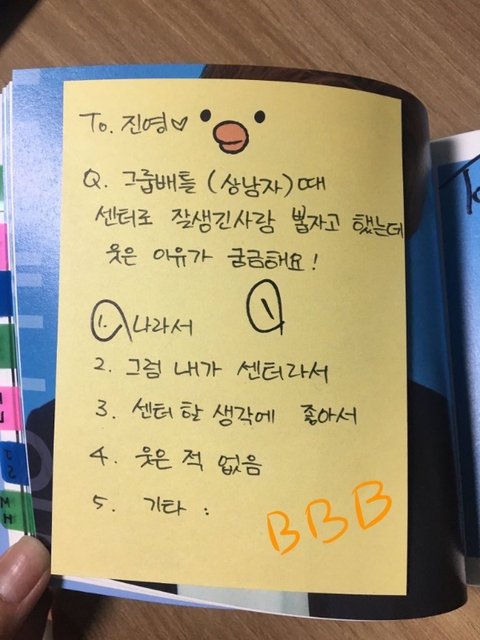 To. 진영♡
Q. 그룹배틀 (상남자)때
센터로 잘생긴사람 뽑자고 했는데
웃은 이유가 궁금해요!
1. 나라서
1
2. 그럼 내가 센터라서
3. 센터 할 생각에 좋아서
4. 웃은 적 없음
5. 기타 :
BBB